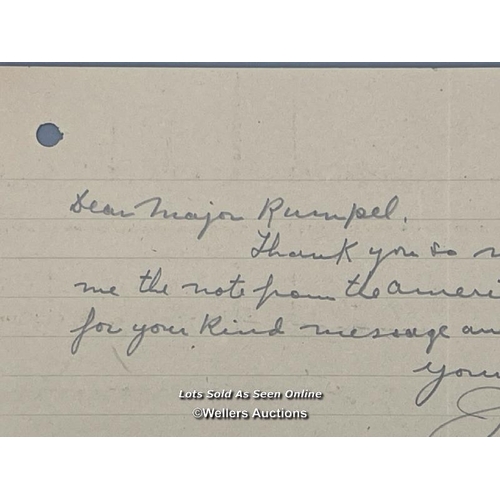 Dear Major Rumpel.
Thank you so
me the note from the Ameri
for your kind message an
your
Lots Sold As Seen Online
©Wellers Auctions